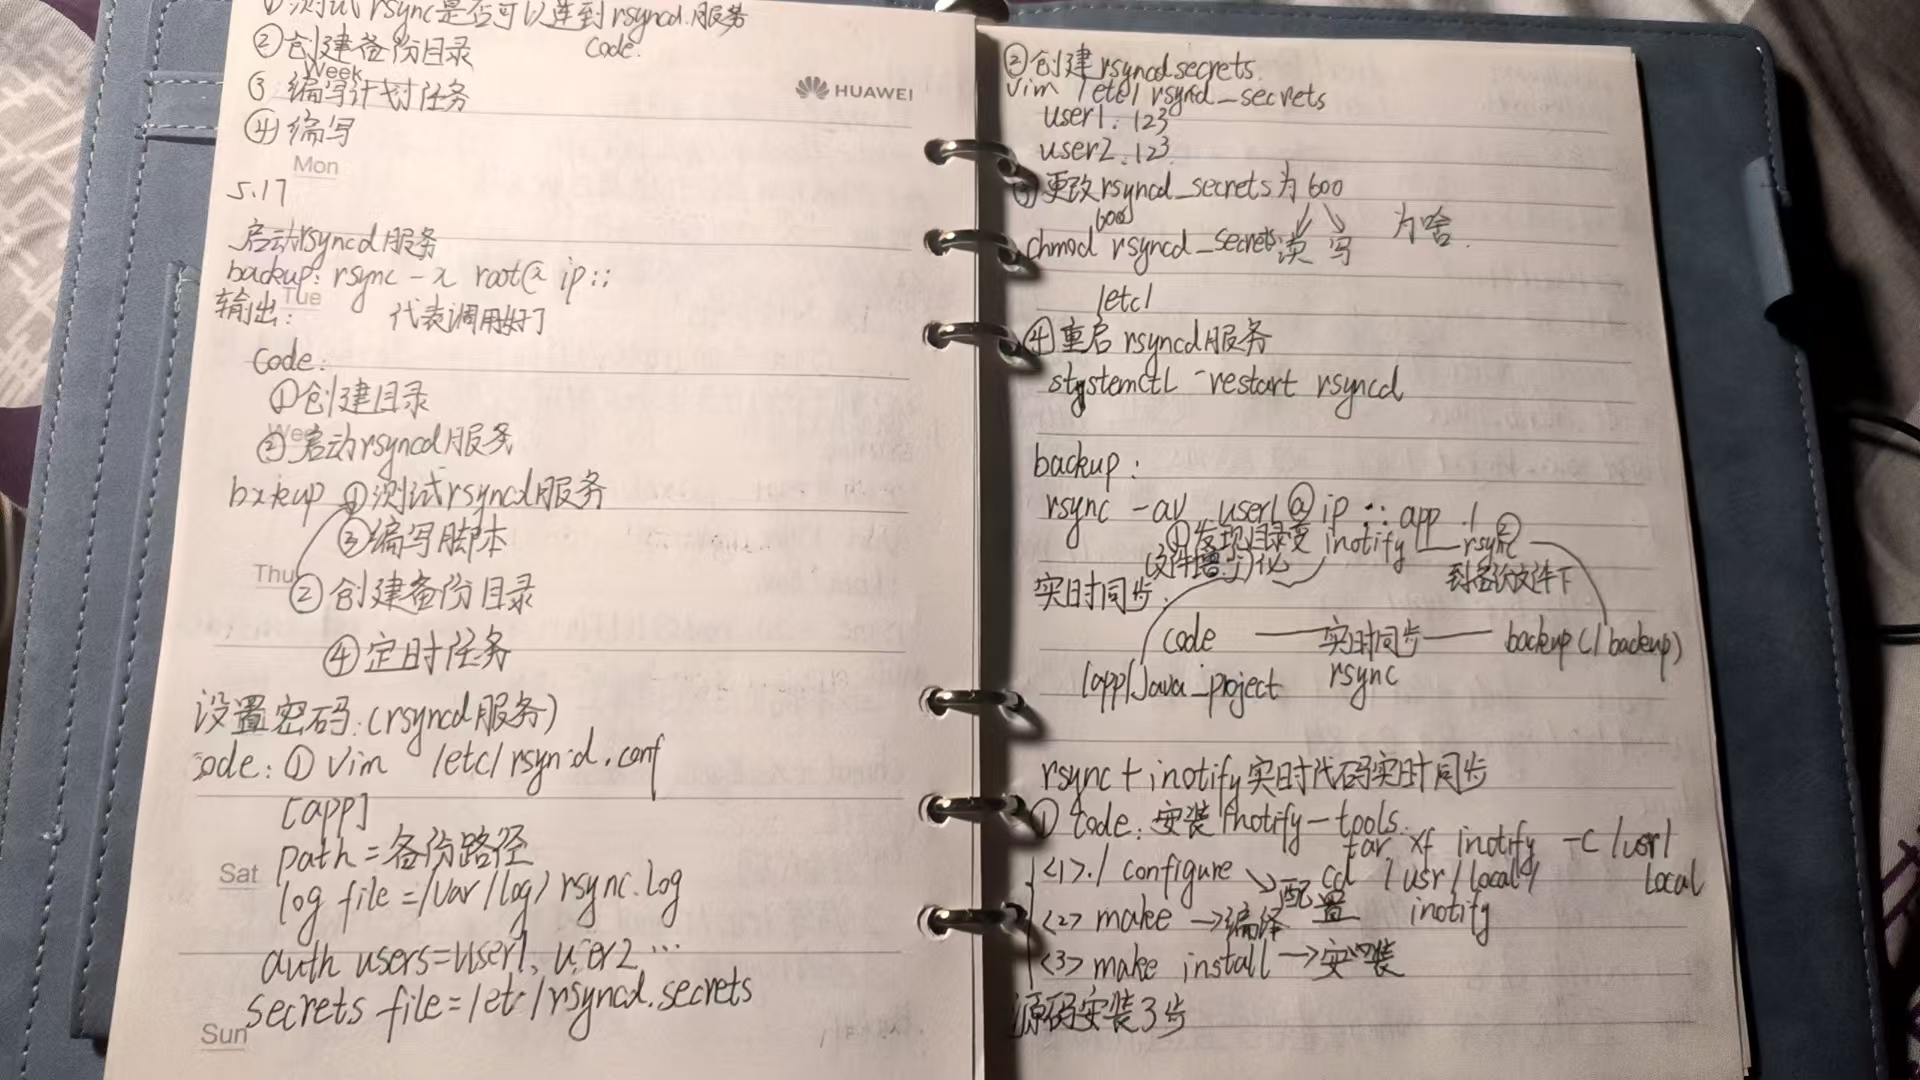 ①测试rsync是否可以连到rsyncd服务
②创建备份目录 code.
Week
③ 编写计划任务
HUAWEI
④编写
Mon
5.17
启动rsyncd服务
backup: rsync -x root@ ip::
Tue
输出: 代表调用好了
code:
①创建目录
Wed
②启动rsyncd服务
①测试rsyncd服务
③编写脚本
Thu
②创建备份目录
④定时任务
设置密码:(rsyncd服务)
code: ① vim /etc/rsyncd.conf
[app]
path=备份路径
Sat
log file=/var/log/rsync.log
auth users=user1、user2…
secrets file=/etc/rsyncd.secrets
Sun
②创建rsyncdsecrets.
vim /etc/rsyncd_secrets
user1:123
user2:123
③更改rsyncd_secrets为600
600
chmod rsyncd_secrets 读 写 为啥.
/etc/
④重启rsyncd服务
systemctl -restart rsyncd
backup:
rsync -av user1@ip::app ./
①发现目录变 inotify rsync ②
化 到备份文件下
实时同步.
code 实时同步 backup(/backup)
/app/Java_project rsync
rsync+inotify实时代码实时同步
① code: 安装inotify-tools.
tar xf inotify -C /usr/
local
<1>./configure 配置 cd /usr/local/
inotify
<2> make →编译
<3> make install →安装
源码安装3步